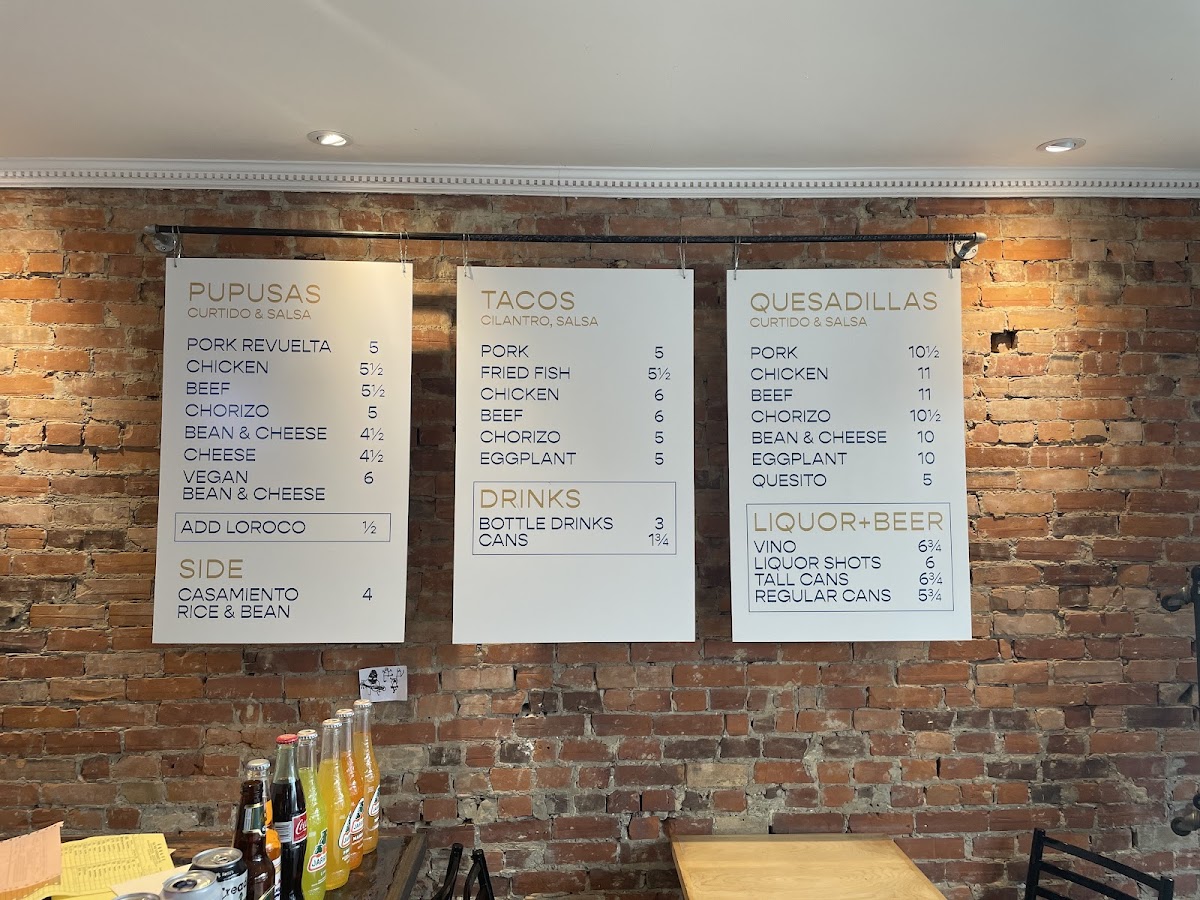 PUPUSAS
CURTIDO & SALSA
PORK REVUELTA 5
CHICKEN 5½
BEEF 5½
CHORIZO 5
BEAN & CHEESE 4½
CHEESE 4½
VEGAN 6
BEAN & CHEESE
ADD LOROCO ½
SIDE
CASAMIENTO 4
RICE & BEAN
TACOS
CILANTRO, SALSA
PORK 5
FRIED FISH 5½
CHICKEN 6
BEEF 6
CHORIZO 5
EGGPLANT 5
DRINKS
BOTTLE DRINKS 3
CANS 1¾
QUESADILLAS
CURTIDO & SALSA
PORK 10½
CHICKEN 11
BEEF 11
CHORIZO 10½
BEAN & CHEESE 10
EGGPLANT 10
QUESITO 5
LIQUOR+BEER
VINO 6¾
LIQUOR SHOTS 6
TALL CANS 6¾
REGULAR CANS 5¾